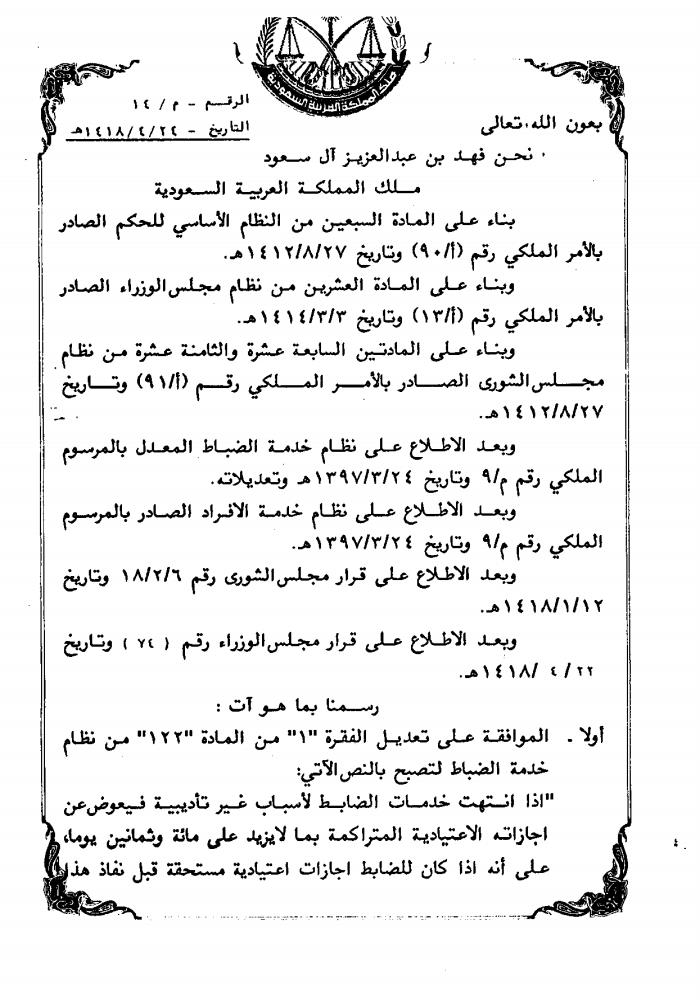 المملكة العربية السعودية
الرقم - م / ١٤
التاريخ - ١٤١٨/٤/٢٤هـ
بعون الله تعالى
نحن فهد بن عبدالعزيز آل سعود
ملك المملكة العربية السعودية
بناء على المادة السبعين من النظام الأساسي للحكم الصادر
بالأمر الملكي رقم (أ/٩٠) وتاريخ ١٤١٢/٨/٢٧هـ.
وبناء على المادة العشرين من نظام مجلس الوزراء الصادر
بالأمر الملكي رقم (أ/١٣) وتاريخ ١٤١٤/٣/٣هـ.
وبناء على المادتين السابعة عشرة والثامنة عشرة من نظام
مجلس الشورى الصادر بالأمر الملكي رقم (أ/٩١) وتاريخ
١٤١٢/٨/٢٧هـ.
وبعد الاطلاع على نظام خدمة الضباط المعدل بالمرسوم
الملكي رقم م/٩ وتاريخ ١٣٩٧/٣/٢٤هـ وتعديلاته.
وبعد الاطلاع على نظام خدمة الافراد الصادر بالمرسوم
الملكي رقم م/٩ وتاريخ ١٣٩٧/٣/٢٤هـ.
وبعد الاطلاع على قرار مجلس الشورى رقم ١٨/٢/٦ وتاريخ
١٤١٨/١/١٢هـ.
وبعد الاطلاع على قرار مجلس الوزراء رقم ( ٧٤ ) وتاريخ
٢٢ / ٤ /١٤١٨هـ.
رسمنا بما هو آت :
أولا ـ الموافقة على تعديل الفقرة "١" من المادة "١٢٢" من نظام
خدمة الضباط لتصبح بالنص الآتي:
"اذا انتهت خدمات الضابط لأسباب غير تأديبية فيعوض عن
اجازاته الاعتيادية المتراكمة بما لايزيد على مائة وثمانين يوما،
على أنه اذا كان للضابط اجازات اعتيادية مستحقة قبل نفاذ هذا